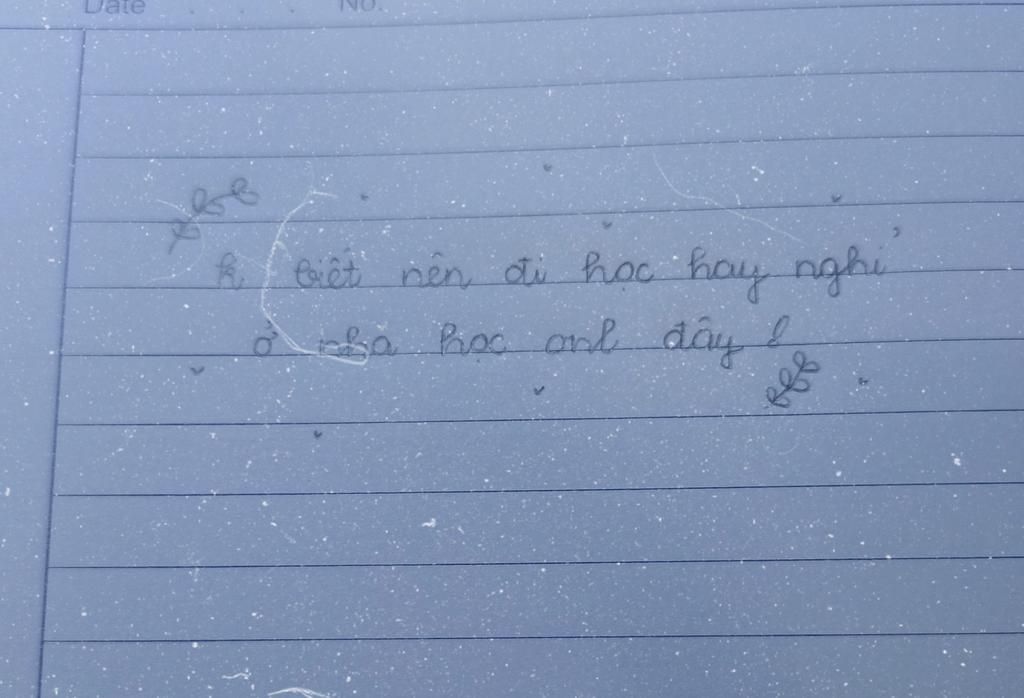 Date . . . No.
k biết nên đi học hay nghỉ
ở nhà học onl đây